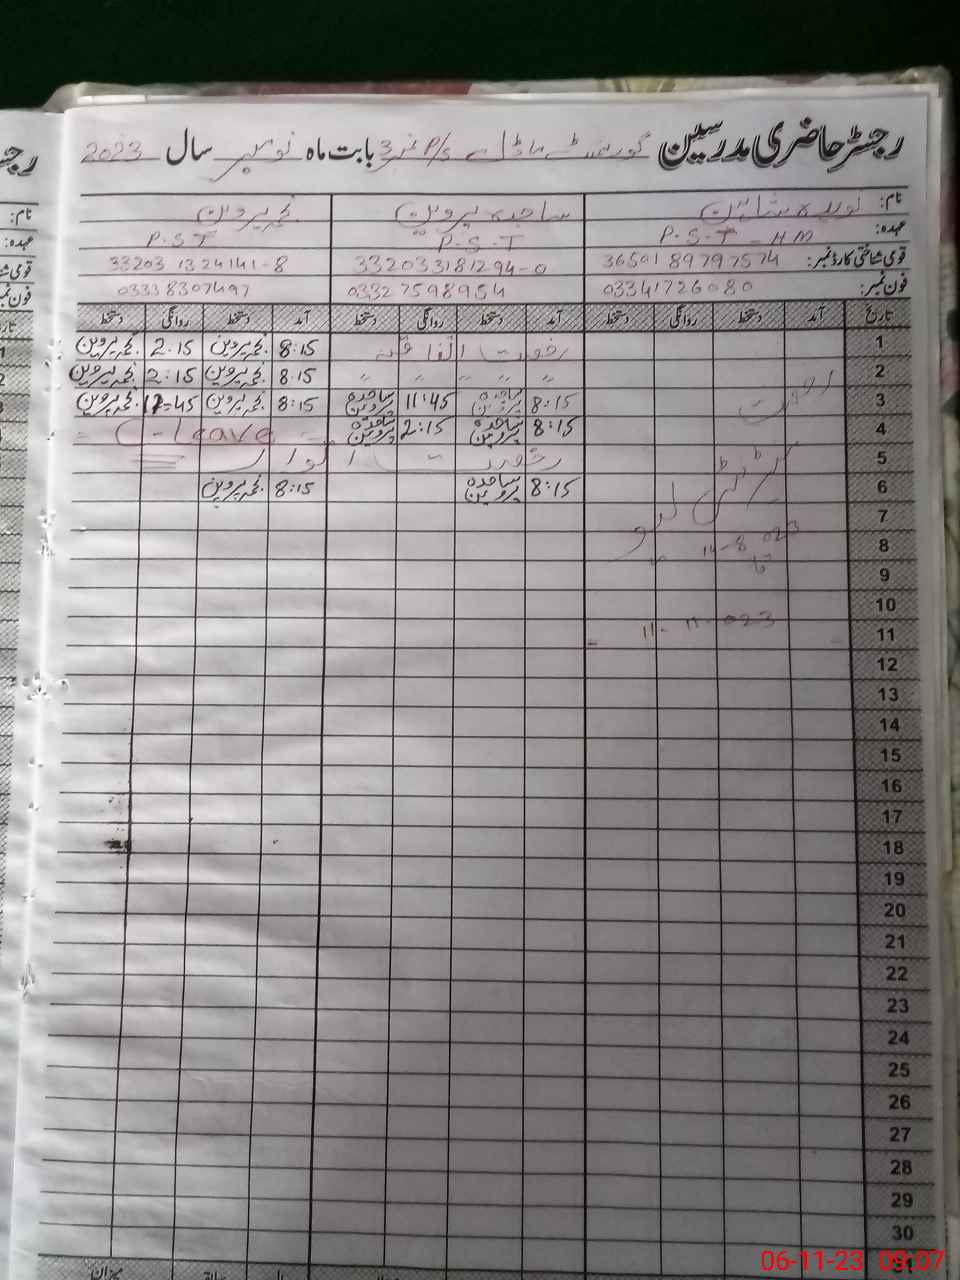 رجسٹر حاضری مدرسین گورنمنٹ ماڈل P/S نمبر 3 بابت ماہ نومبر سال 2023
نام: نورین شاہین ساجدہ پروین نجمہ پروین
عہدہ: P.S.T - HM P.S.T P.S.T
قومی شناختی کارڈ نمبر: 36501 89797574 332033181294-0 33203 1324141-8
فون نمبر: 03341726080 03327598954 03338307497
تاریخ آمد دستخط روانگی دستخط آمد دستخط روانگی دستخط آمد دستخط روانگی دستخط
1 رخصت اتفاقیہ 8:15 نجمہ پروین 2:15 نجمہ پروین
2 〃 〃 〃 〃 〃 8:15 نجمہ پروین 2:15 نجمہ پروین
3 8:15 ساجدہ پروین 11:45 ساجدہ پروین 8:15 نجمہ پروین 11:45 نجمہ پروین
4 8:15 ساجدہ پروین 2:15 ساجدہ پروین C-Leave
5 اتوار
6 8:15 ساجدہ پروین 8:15 نجمہ پروین
7 لیو
8 14-8-023
9 تا
10
11 11-11-023
12
13
14
15
16
17
18
19
20
21
22
23
24
25
26
27
28
29
30
31
میزان
06-11-23 09:07